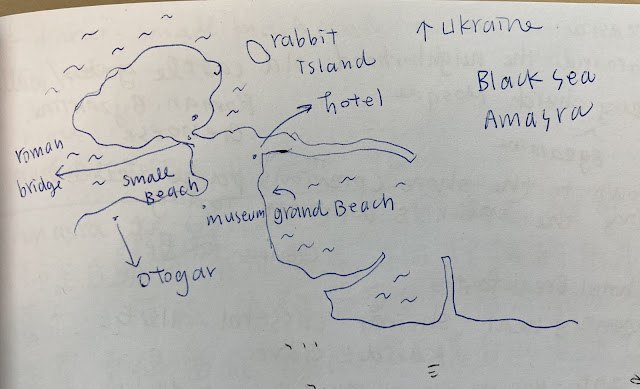 rabbit
Island
↑ Ukraine
Black sea
Amasra
hotel
roman
bridge
small
Beach
museum
grand Beach
otogar